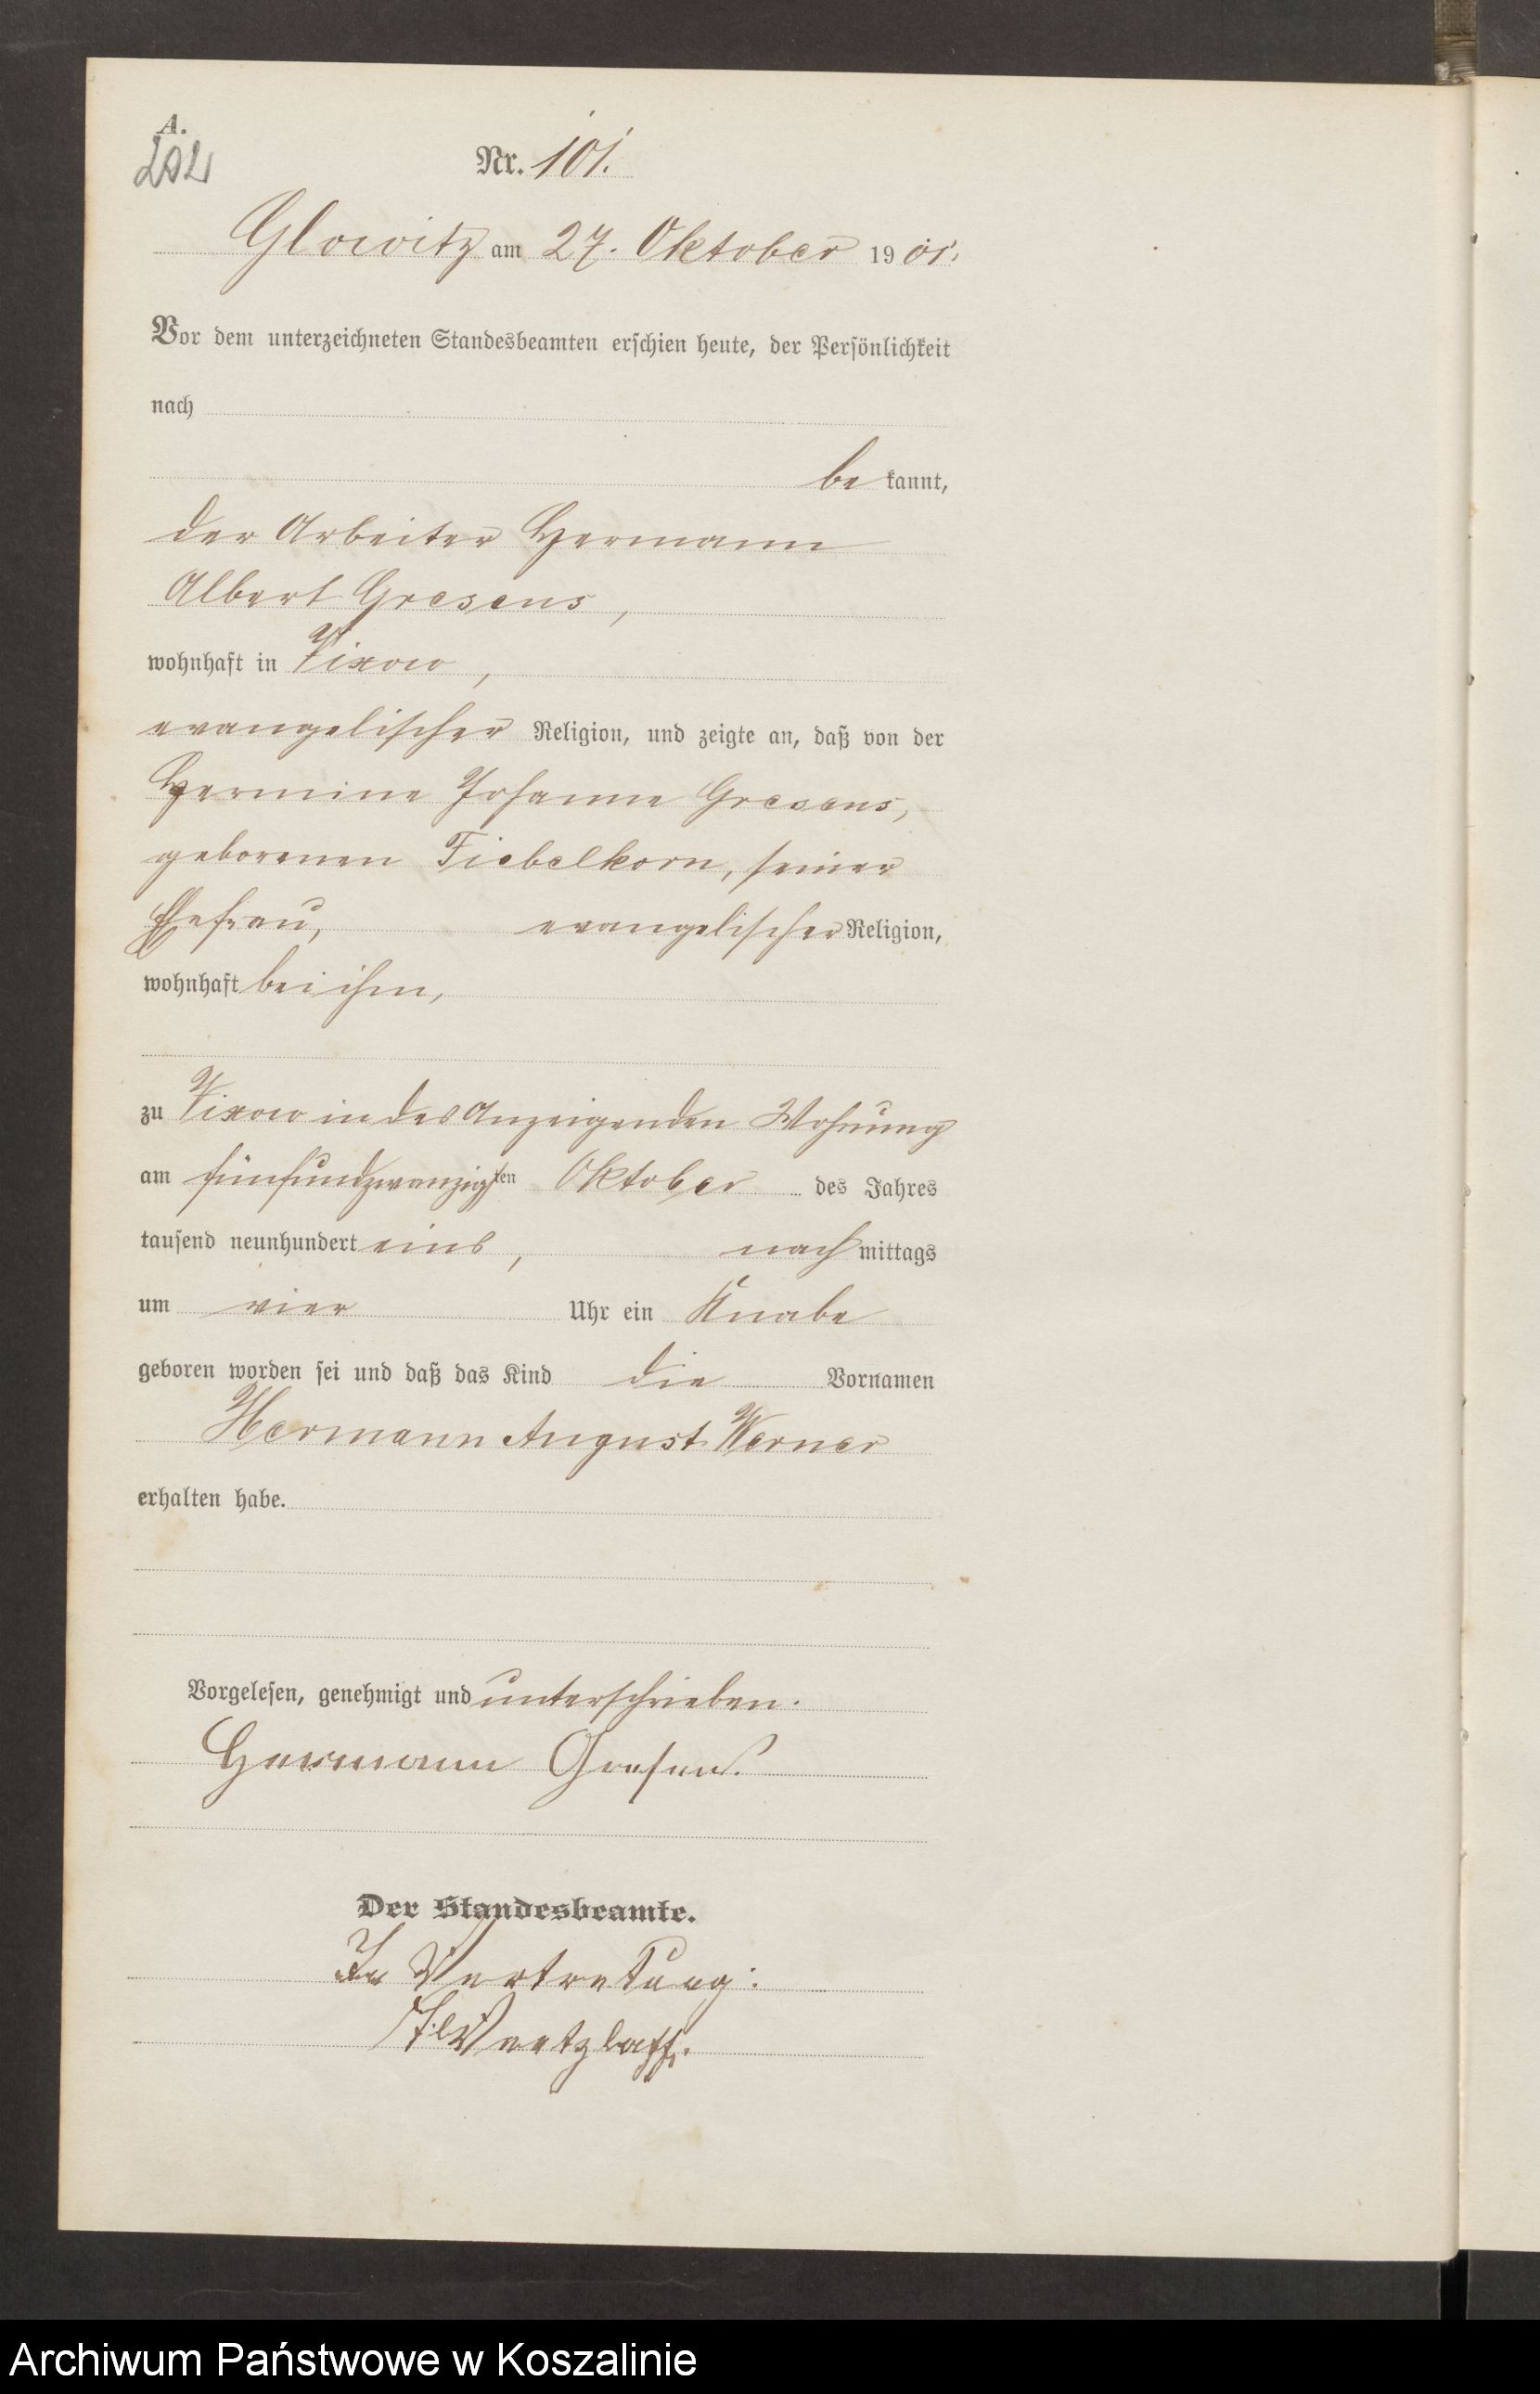 A.
202
Nr. 101.
Glowitz am 27. Oktober 1901.
Vor dem unterzeichneten Standesbeamten erschien heute, der Persönlichkeit
nach
be kannt,
der Arbeiter Hermann
Albert Gresens,
wohnhaft in Vixow,
evangelischer Religion, und zeigte an, daß von der
Hermine Johanne Gresens,
geborenen Fiebelkorn, seiner
Ehefrau, evangelischer Religion,
wohnhaft bei ihm,
zu Vixow in des Anzeigenden Wohnung
am fünfundzwanzigsten Oktober des Jahres
tausend neunhundert eins, nach mittags
um vier Uhr ein Knabe
geboren worden sei und daß das Kind die Vornamen
Hermann August Werner
erhalten habe.
Vorgelesen, genehmigt und unterschrieben.
Hermann Gresens.
Der Standesbeamte.
In Vertretung:
Archiwum Państwowe w Koszalinie